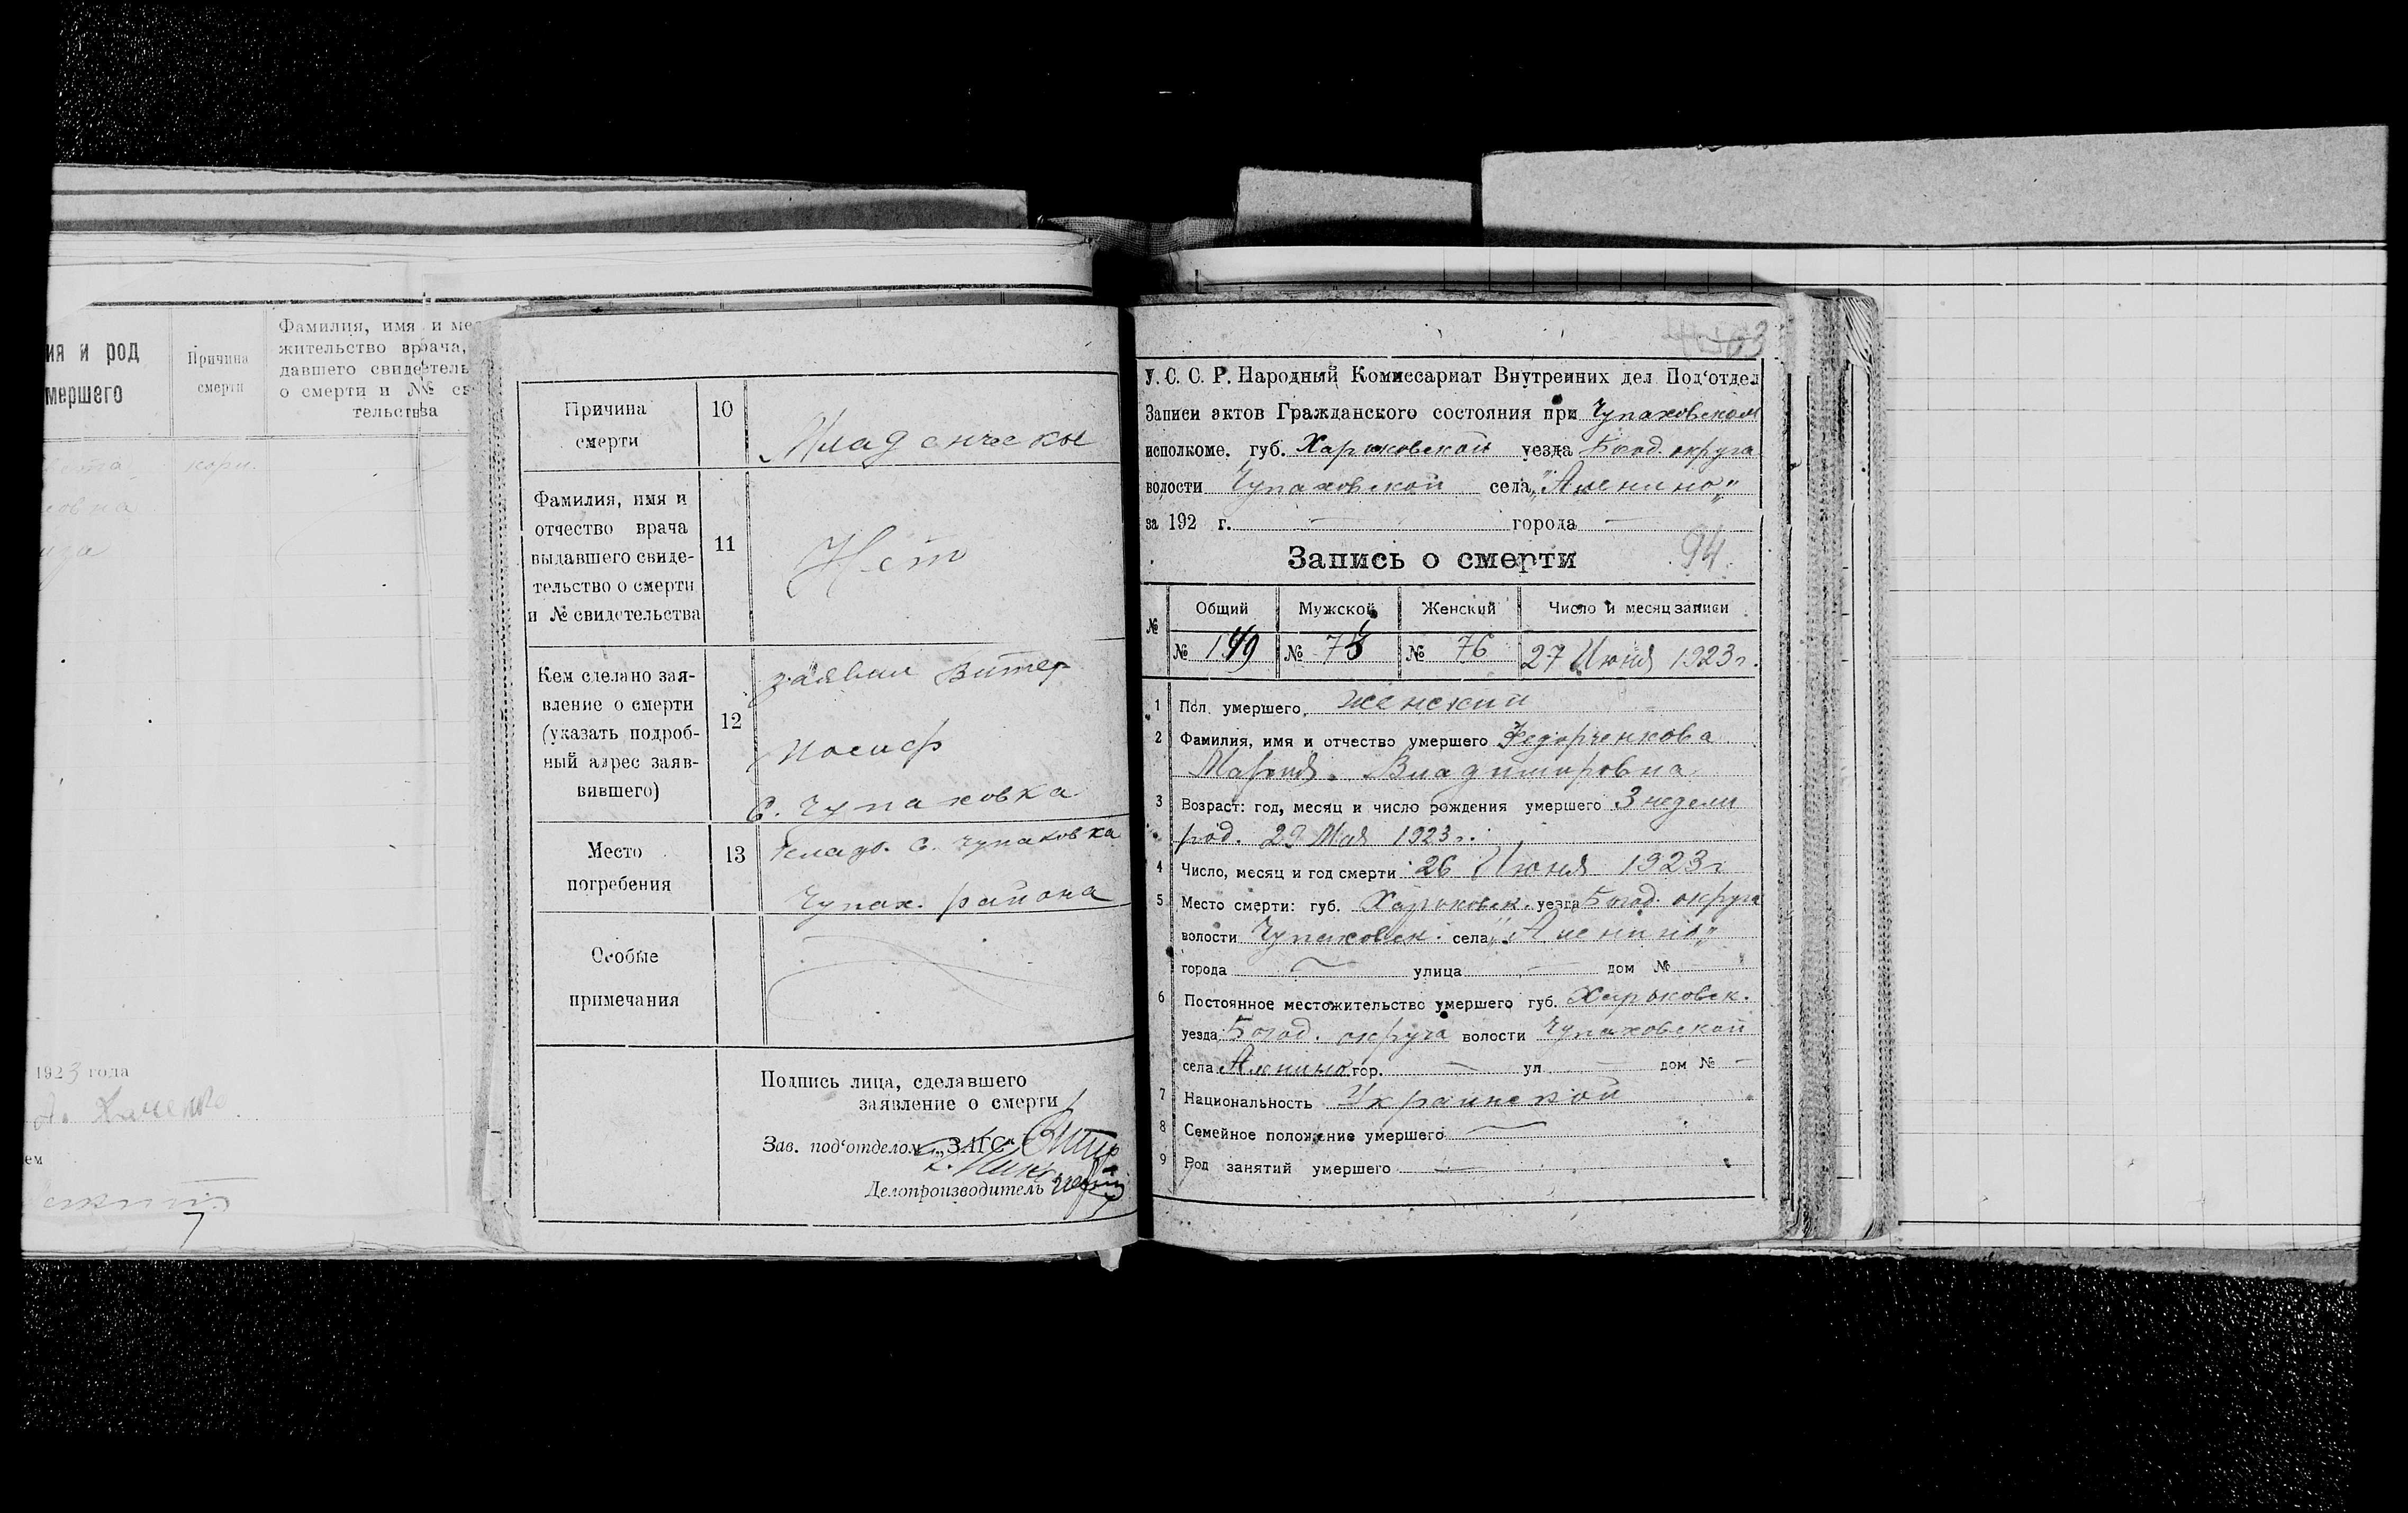 ия и род
мершего
Причина
смерти
Фамилия, имя и ме
жительство врача,
давшего свидетель
о смерти и № св
тельства
1923 года
ем
Причина
смерти
10
Младенческ
Фамилия, имя и
отчество врача
выдавшего свиде-
тельство о смерти
и № свидетельства
11
Нет
Кем сделано зая-
вление о смерти
(указать подроб-
ный адрес заяв-
вившего)
12
заявил Витер
Иосиф
С. Чупаховка
Место
погребения
13
кладб. С. Чупаховка
Чупах. района
Особые
примечания
Подпись лица, сделавшего
заявление о смерти
Зав. под‘отделом „ЗАГС“
Делопроизводитель
63
У. С. С. Р. Народный Комиссариат Внутренних дел Под‘отдел
Записи актов Гражданского состояния при Чупаховском
исполкоме. губ. Харьковской уезда Богод. округа
волости Чупаховской села
за 192 г. города
Запись о смерти 94
№ Общий Мужской Женский Число и месяц записи
№ 149 № 73 № 76 27 Июня 1923 г.
1 Пол умершего женский
2 Фамилия, имя и отчество умершего Федорченкова
Мария Владимировна
3 Возраст: год, месяц и число рождения умершего 3 недели
род. 29 Мая 1923 г.
4 Число, месяц и год смерти 26 Июня 1923 г
5 Место смерти: губ. Харьковск. уезда Богод. округа
волости Чупаховск. села
города улица дом №
6 Постоянное местожительство умершего губ. Харьковск.
уезда Богод. округа волости Чупаховской
села гор. ул дом №
7 Национальность Украинской
8 Семейное положение умершего
9 Род занятий умершего